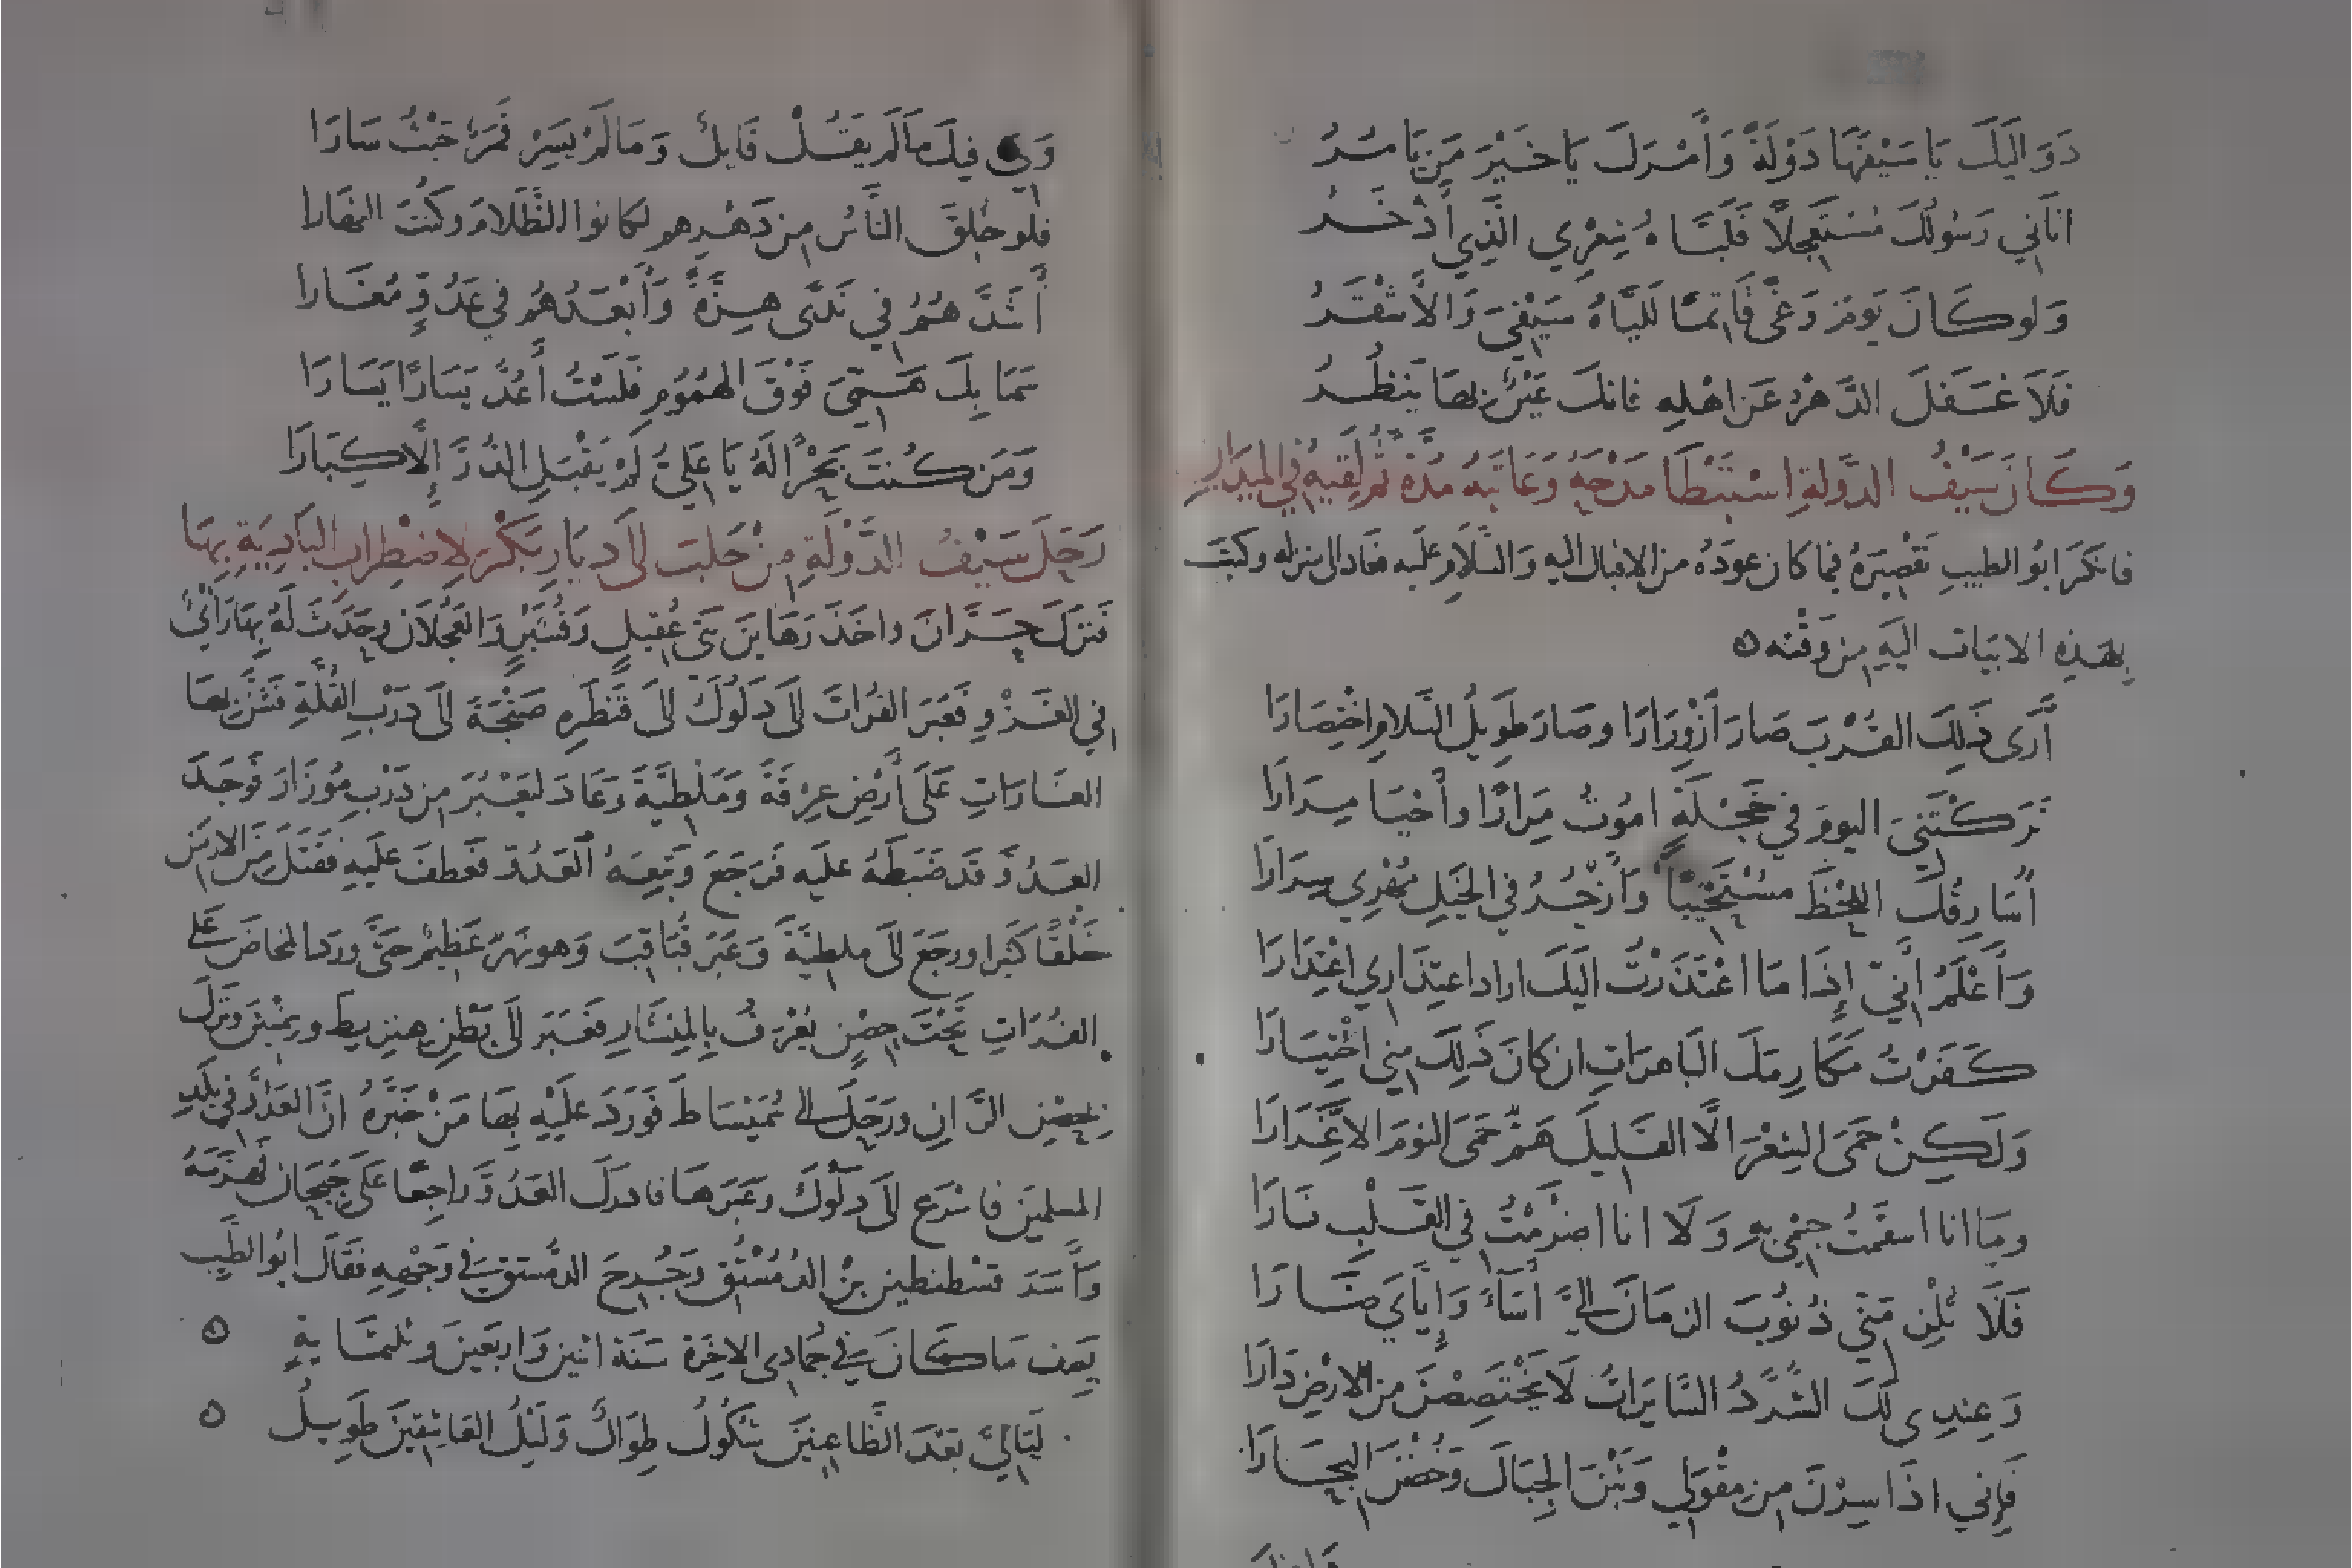 دَوَالَيْكَ يَا سَيْفَهَا دَوْلَةً وَأَمْرَكَ يَا خَيْرَ مَن يَأمُرُ
اتَانِي رَسُولُكَ مُسْتَعْجِلاً فَلَبَّاهُ شِعْرِي الَّذِي أَذْخَرُ
وَلو كَانَ يَومَ وَغًى قَاتِمًا لَلَبَّاهُ سَيْفِيَ وَالأَشْقَرُ
فَلاَ غَفَلَ الدَّهْرُ عَن اهْلِهِ فانكَ عَيْنٌ بِهَا يَنظُرُ
وَكَانَ سَيْفُ الدَّولَةِ اسْتَبْطَا مَدْحَهُ وَعَاتَبَهُ مُدَّةً ثُمَّ لَقِيَهُ فِي المَيدَانِ
فانكَرَ ابُو الطيبِ تَقْصِيرَهُ فيما كان عوَّدَهُ من الاقبال اليه وَالسَّلاَمِ علَيه فعَاد الى منزله وكتبَ
بِهَذِهِ الابيَات اليَهِ مِن وَقْته ه
أَرَى ذَلِكَ القُرْبَ صَارَ أزْوِرَارَا وصَارَ طَوِيلُ السَّلامِ اخْتِصَارَا
تَرَكْتَنِيَ اليومَ فِي خَجْلَةٍ امُوتُ مِرَارًا وأَحْيَا مِرَارَا
أُسَارِقُكَ اللَّحْظَ مسْتَحْيِيًا وَأَزْجُرُ فِي الخَيلِ مُهْرِي سِرَارَا
وَأَعْلَمُ أَنِّي إِذَا مَا اعْتَذَرْتُ اليَكَ اراد اعتِذَاري اعْتِذَارَا
كَفَرْتُ مَكَارِمَكَ البَاهرَاتِ ان كانَ ذَلِكَ مِني اخْتِيَارَا
وَلَكِنْ حَمَى الشِعْرَ الَّا القَلِيلَ هَمٌّ حَمَى النومَ الاَّ غِرَارَا
ومَا انا اسقَمتُ جِسْمي بِهِ وَلَا انا اضرَمْتُ فِي القَلْبِ نَارَا
فَلَا تُلْزِمَنِّي ذُنُوبَ الزمَانِ الَيَّ أَسَاءَ وَإِيَّايَ ضَارَا
وَعِندِي لَكَ الشُّرَّدُ السَّايِرَاتُ لَا يَخْتَصِصْنَ من الارْضِ دَارَا
فَإِني اذَا سِرْنَ مِن مِقْوَلِي وَثَبْنَ الجِبَالَ وَخُضْنَ البِحَارَا
وَلِي فيكَ مَا لَم يَقُلْ قَايلٌ وَمَا لَمْ يَسِرْ قَمَرٌ حَيْثُ سَارَا
فلو خُلِقَ النَّاسُ مِن دَهْرِهِم لكانوا الظَّلَامَ وكُنْتَ النهَارا
أَشَدُّهُمُ فِي نَدًى هِزَّةً وَأَبْعَدُهُم فِي عَدُوٍّ مُغَارا
سَمَا بِكَ هَمِّيَ فَوْقَ الهُمُومِ فَلَسْتُ أَعُدُّ يَسَارًا يَسَارَا
وَمَن كُنتَ بَحْرًا لَهُ يَا عَلِيُّ لَم يَقْبَلِ الدُّرَّ إِلَّا كِبَارَا
رَحَلَ سَيْفُ الدَّوْلَةِ مِنْ حَلبَ الَى دِيَارِ بَكْرٍ لاِضْطِرابِ البَادِيَةِ بِهَا
فَنزلَ حَرَّانَ واخَذَ رَهَاينَ بَني عُقَيلٍ وَقُشَيْرٍ وَالعَجْلاَنِ وحَدَثَ لَهُ بِهَا رَأْيٌ
فِي الغَزْوِ فعَبَرَ الفُرَاتَ الَى دَلُوكَ الىَ قَنطَرَهِ صَنْجَةَ الَى دَرْبِ القُلَّةِ فشَنَّ بِهَا
الغَارَاتِ عَلَى أَرْضِ عِرْقَةَ وَمَلَطْيَّةَ وَعَادَ ليَعْبُرَ مِن دَرْبِ مُوزَارَ فَوَجَدَ
العَدُوَّ قَد ضَبَطَهُ عليَه فَرَجَعَ وَتَبِعَهُ العَدُوُّ فعَطَفَ عليَهِ فقَتَلَ مِنَ الارمَنِ
خَلْقًا كَثيرا ورجَعَ الَى ملطيَّةَ وَعَبَرَ قُبَاقِبَ وَهو نَهَرٌ عَظِيمٌ حَتَّى ورد المخاضَ عَلَى
الفُرَاتِ تَحْتَ حِصْنٍ يُعْرَفُ بِالمِنشَارِ فعَبَرَ الَى بَطْنِ هِنزِيط وسُمْنِينَ وَنَزَلَ
بحِصْنِ الرَّانِ ورَحَلَ الى سُمَيْسَاطَ فَوَرَدَ عَلَيْهِ بِهَا مَنْ خَبَّرَهُ انَّ العَدُوَّ فِي بَلَدِ
المسلمِينَ فاسْرَعَ الَى دَلُوكَ وعَبَرَهَا فادرَكَ العَدُوَّ رَاجِعًا عَلَى جَيْحَان فهَزَمَهُ
وَأَسَرَ قسْطنطين بنْ الدُّمُسْتُقِ وَجُرِحَ الدُّمسْتق فِي وَجْهِهِ فقَالَ ابُو الطَّيِّبِ
يَصِف مَا كَانَ فِي جُمَادِى الاخِرَةِ سَنَة اثنين وَاربَعِينَ وثلثمَايةٍ ه
لَيَالِيَّ بَعْدَ الظَّاعِنِينَ شُكُولُ طِوَالٌ وَلَيْلُ العَاشِقِينَ طَوِيلُ ه